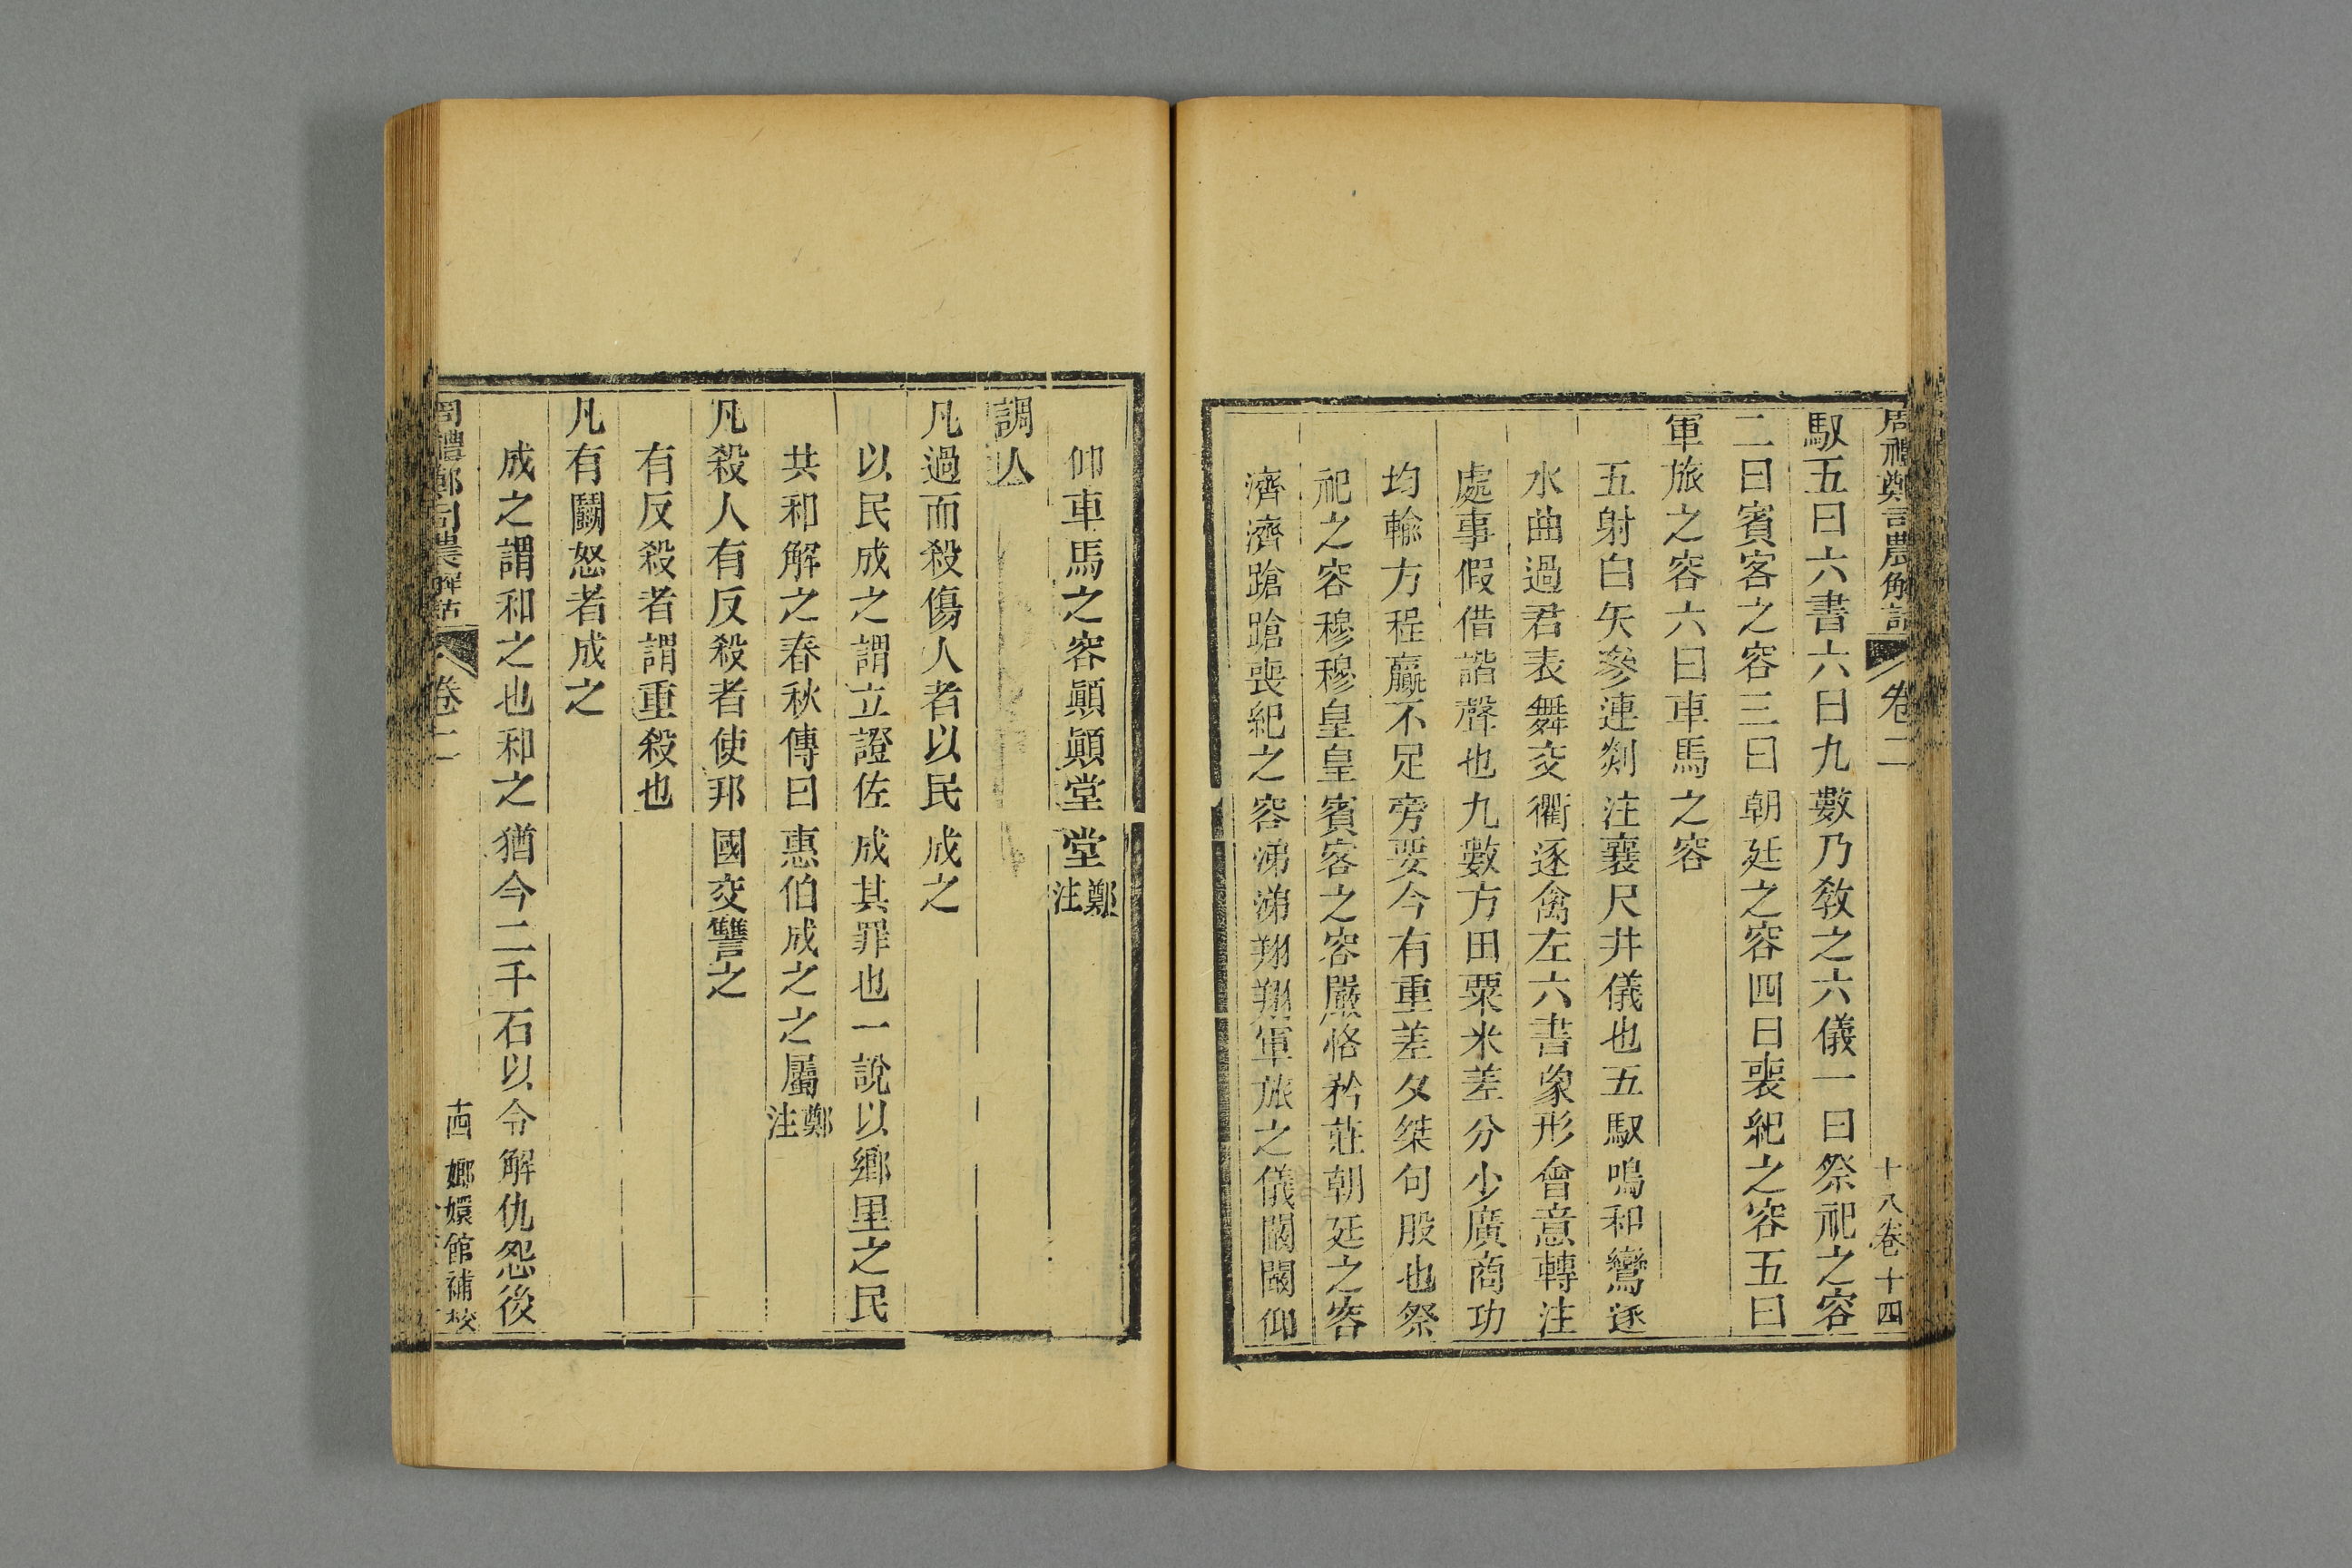 周禮鄭司農解詁 卷二 十八卷十四
馭五曰六書六曰九數乃敎之六儀一曰祭祀之容
二曰賓客之容三曰朝廷之容四曰喪紀之容五曰
軍旅之容六曰車馬之容
五射白矢參連剡注襄尺井儀也五馭鳴和鸞逐
水曲過君表舞交衢逐禽左六書象形會意轉注
處事假借諧聲也九數方田粟米差分少廣商功
均輸方程贏不足旁要今有重差夕桀句股也祭
祀之容穆穆皇皇賓客之容嚴恪矜莊朝廷之容
濟濟蹌蹌喪紀之容涕涕翔翔軍旅之儀闞闞仰
仰車馬之容顚顚堂堂鄭注
調人
凡過而殺傷人者以民成之
以民成之謂立證佐成其罪也一說以鄕里之民
共和解之春秋傳曰惠伯成之之屬鄭注
凡殺人有反殺者使邦國交讐之
有反殺者謂重殺也
凡有鬭怒者成之
成之謂和之也和之猶今二千石以令解仇怨後
周禮鄭司農解詁 卷二 十四 嫏嬛館補校